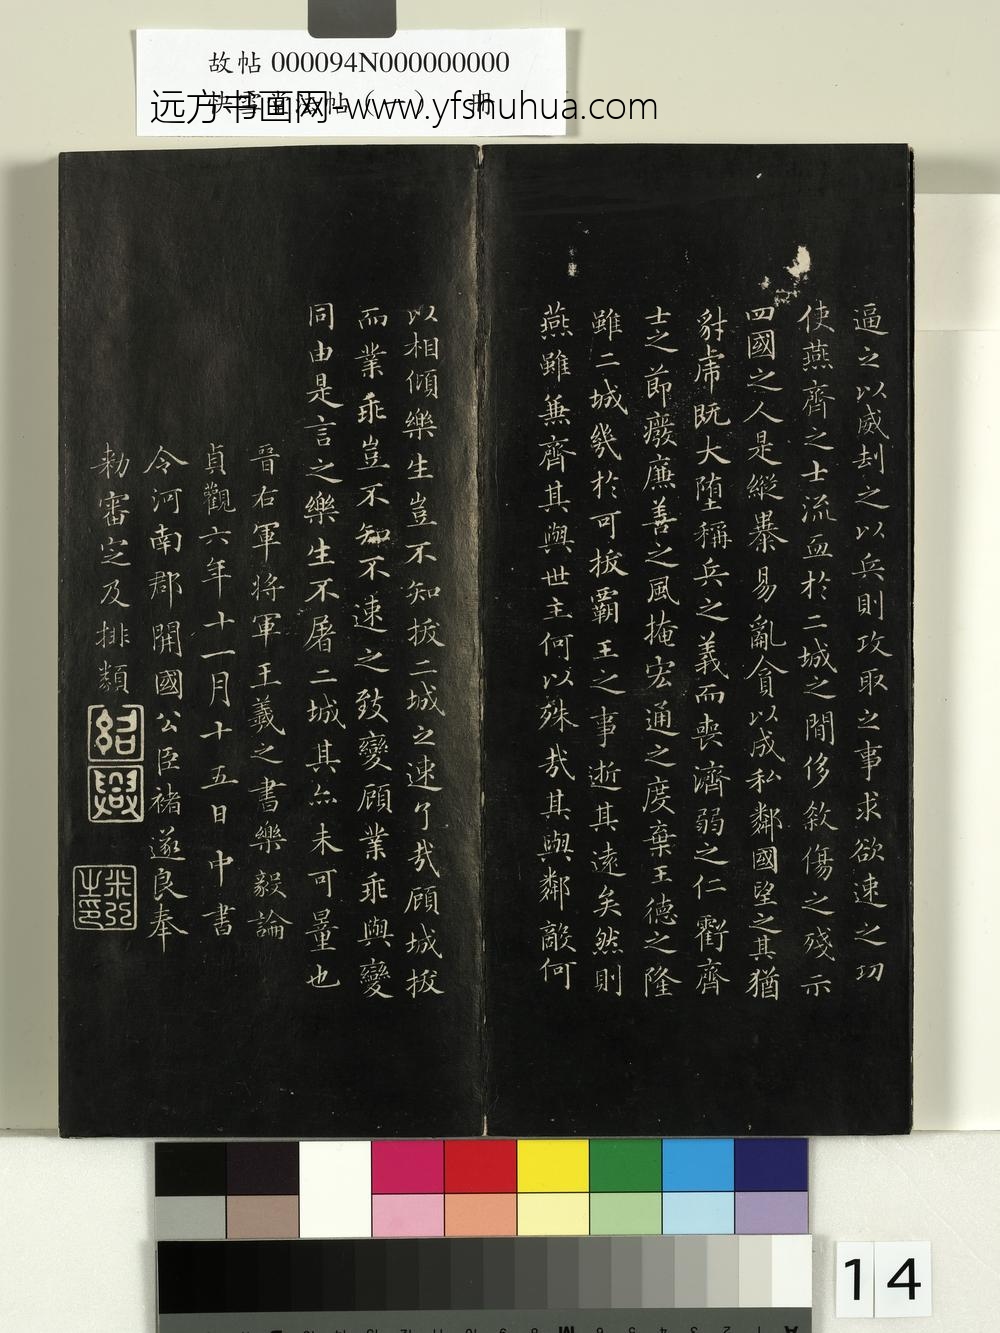 故帖 000094N000000000
远方书画网-www.yfshuhua.com
逼之以威刦之以兵則攻取之事求欲速之功
使燕齊之士流血於二城之閒侈敘傷之殘示
四國之人是縱暴易亂貪以成私鄰國望之其猶
豺虎既大堕稱兵之義而喪濟弱之仁虧齊
士之節癈廉善之風掩宏通之度棄王德之隆
雖二城幾於可拔霸王之事逝其遠矣然則
燕雖兼齊其與世主何以殊哉其與鄰敵何
以相傾樂生豈不知拔二城之速了哉顧城拔
而業乖豈不知不速之致變顧業乖與變
同由是言之樂生不屠二城其亦未可量也
晉右軍將軍王羲之書樂毅論
貞觀六年十一月十五日中書
令河南郡開國公臣褚遂良奉
勑審定及排類
紹興
米芾之印
14